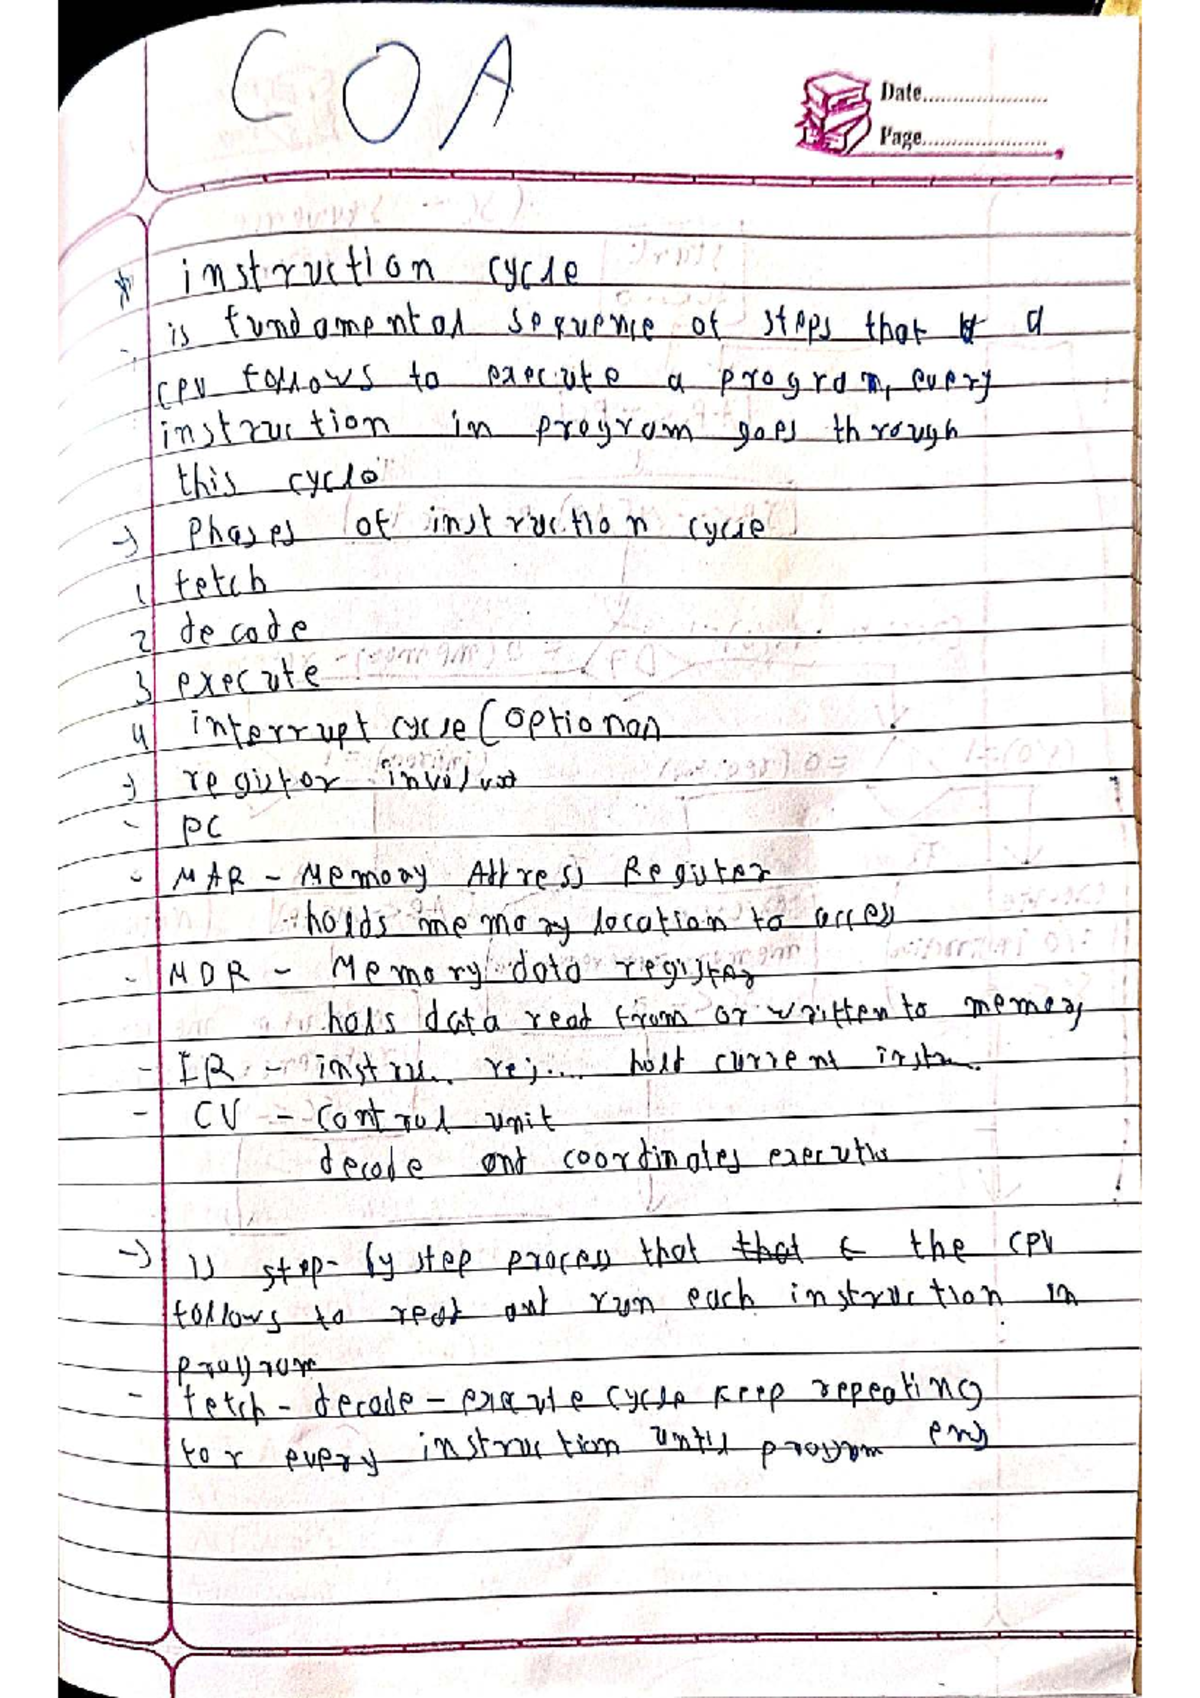 COA
Date
Page
* instruction cycle
is fundamental sequence of steps that a
CPU follows to execute a program, every
instruction in program goes through
this cycle
→ Phases of instruction cycle
1 fetch
2 decode
3 execute
4 interrupt cycle (optional)
→ register involved
- PC
- MAR - Memory Address Register
holds memory location to access
- MDR - Memory data register
holds data read from or written to memory
- IR - instru.. rej.... hold current instru.
- CU - control unit
decode and coordinates execution
→ is step-by step process that that the CPU
follows to read and run each instruction in
program
- fetch - decode - execute cycle keep repeating
for every instruction until program end